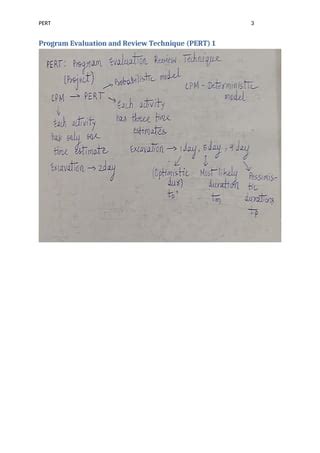 PERT 3
Program Evaluation and Review Technique (PERT) 1
PERT: Program Evaluation Review Technique
(Project) → Probabilistic model
CPM → PERT CPM - Deterministic model
→ Each activity has three time estimates
↓ Each activity has only one time Estimate
Excavation → 2day
Excavation → 1day, 5day, 7day
(Optimistic dur)
to
Most likely duration
tm
Pessimistic duration
tp